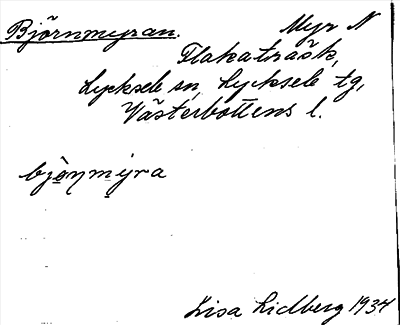 Björnmyran. Myr N
Flakaträsk,
Lycksele sn, Lycksele tg,
Västerbottens l.
bjönmýra
Lisa Lidberg 1934